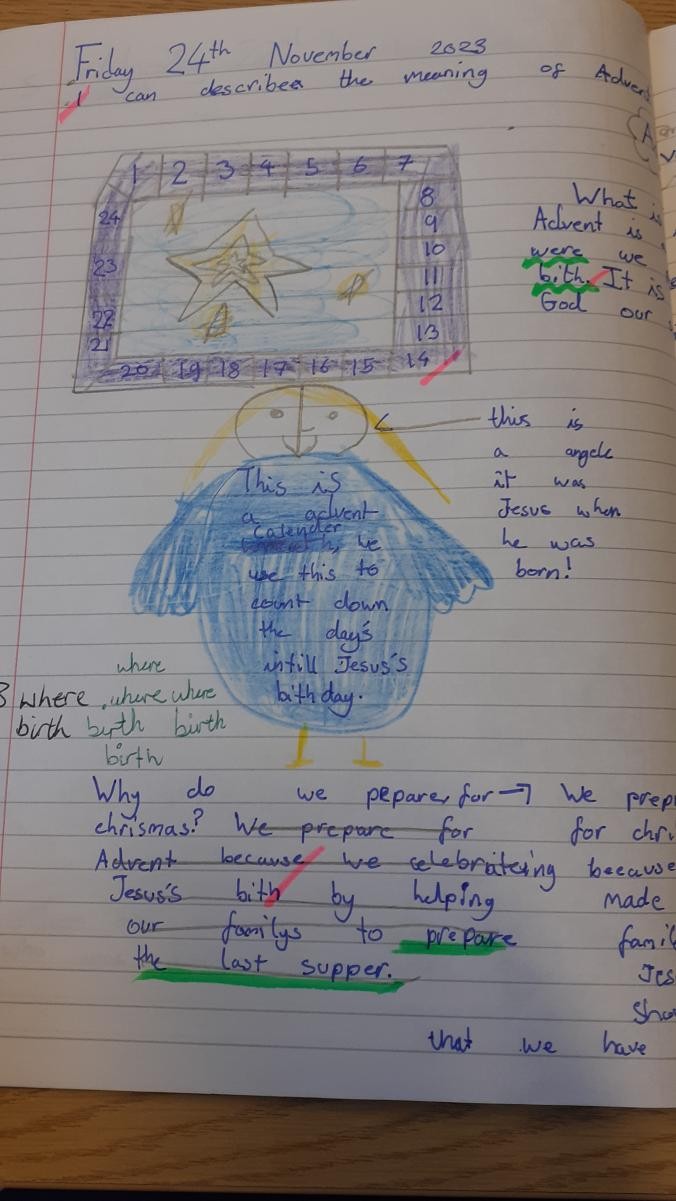 Friday 24th November 2023
I can describe the meaning of Advent
1 2 3 4 5 6 7
8
9
10
11
12
13
14
15
16
17
18
19
20
21
22
23
24
What is
Advent is
were we
bith. It is
God our
this is
a angele
it was
Jesus when
he was
born!
This is
a advent
calender
we
use this to
count down
the day's
intill Jesus's
bithday.
where
where where where
birth birth birth
birth
Why do we pepare, for
chrismas? We prepare for
Advent because we celebrateing
Jesus's bith by helping
our familys to prepare
the last supper.
We prep
for chri
beecause
made
famil
Jes
Sho
that we have